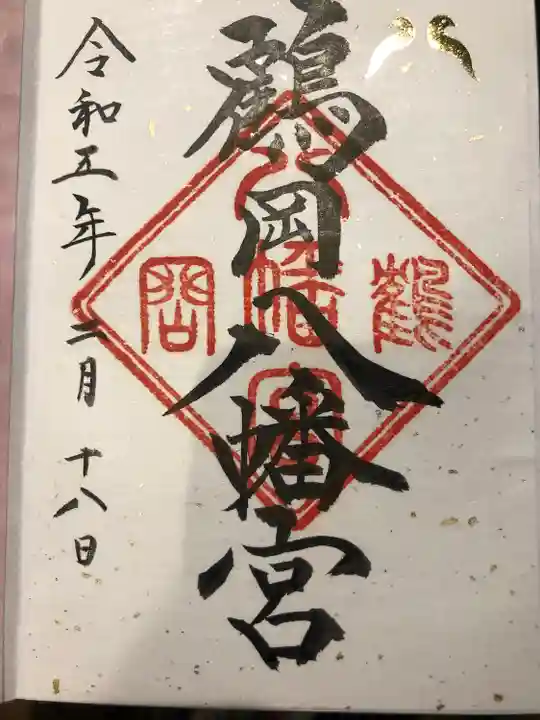 鶴岡八幡宮
令和五年 二月 十八日